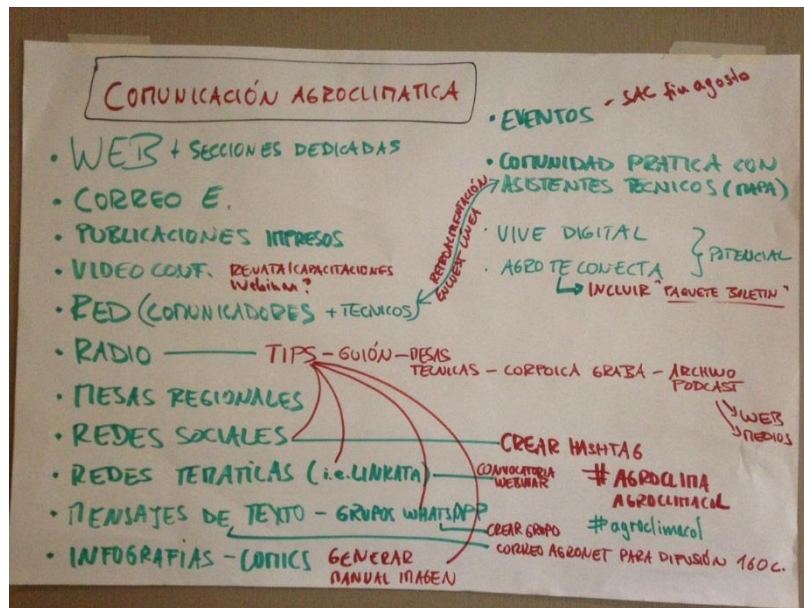 COMUNICACIÓN AGROCLIMATICA
• WEB + SECCIONES DEDICADAS
• CORREO E.
• PUBLICACIONES IMPRESOS
• VIDEO CONF. RENATA/CAPACITACIONES
Webinar?
• RED (COMUNICADORES + TECNICOS)
• RADIO — TIPS – GUIÓN – MESAS
TÉCNICAS – CORPOICA GRABA – ARCHIVO
PODCAST
WEB
MEDIOS
• MESAS REGIONALES
• REDES SOCIALES
CREAR HASHTAG
# AGROCLIMA
AGROCLIMACOL
#agroclimacol
• REDES TEMATICAS (i.e. LINKATA)
CONVOCATORIA
WEBINAR
• MENSAJES DE TEXTO – GRUPOS WHATSAPP
CREAR GRUPO
CORREO AGRONET PARA DIFUSIÓN 160 c.
• INFOGRAFIAS – COMICS GENERAR
MANUAL IMAGEN
• EVENTOS – SAC fin agosto
• COMUNIDAD PRATICA CON
ASISTENTES TECNICOS (MAPA)
RETROALIMENTACIÓN
LINEA
• VIVE DIGITAL
• AGRO TE CONECTA
POTENCIAL
INCLUIR "PAQUETE BOLETIN"